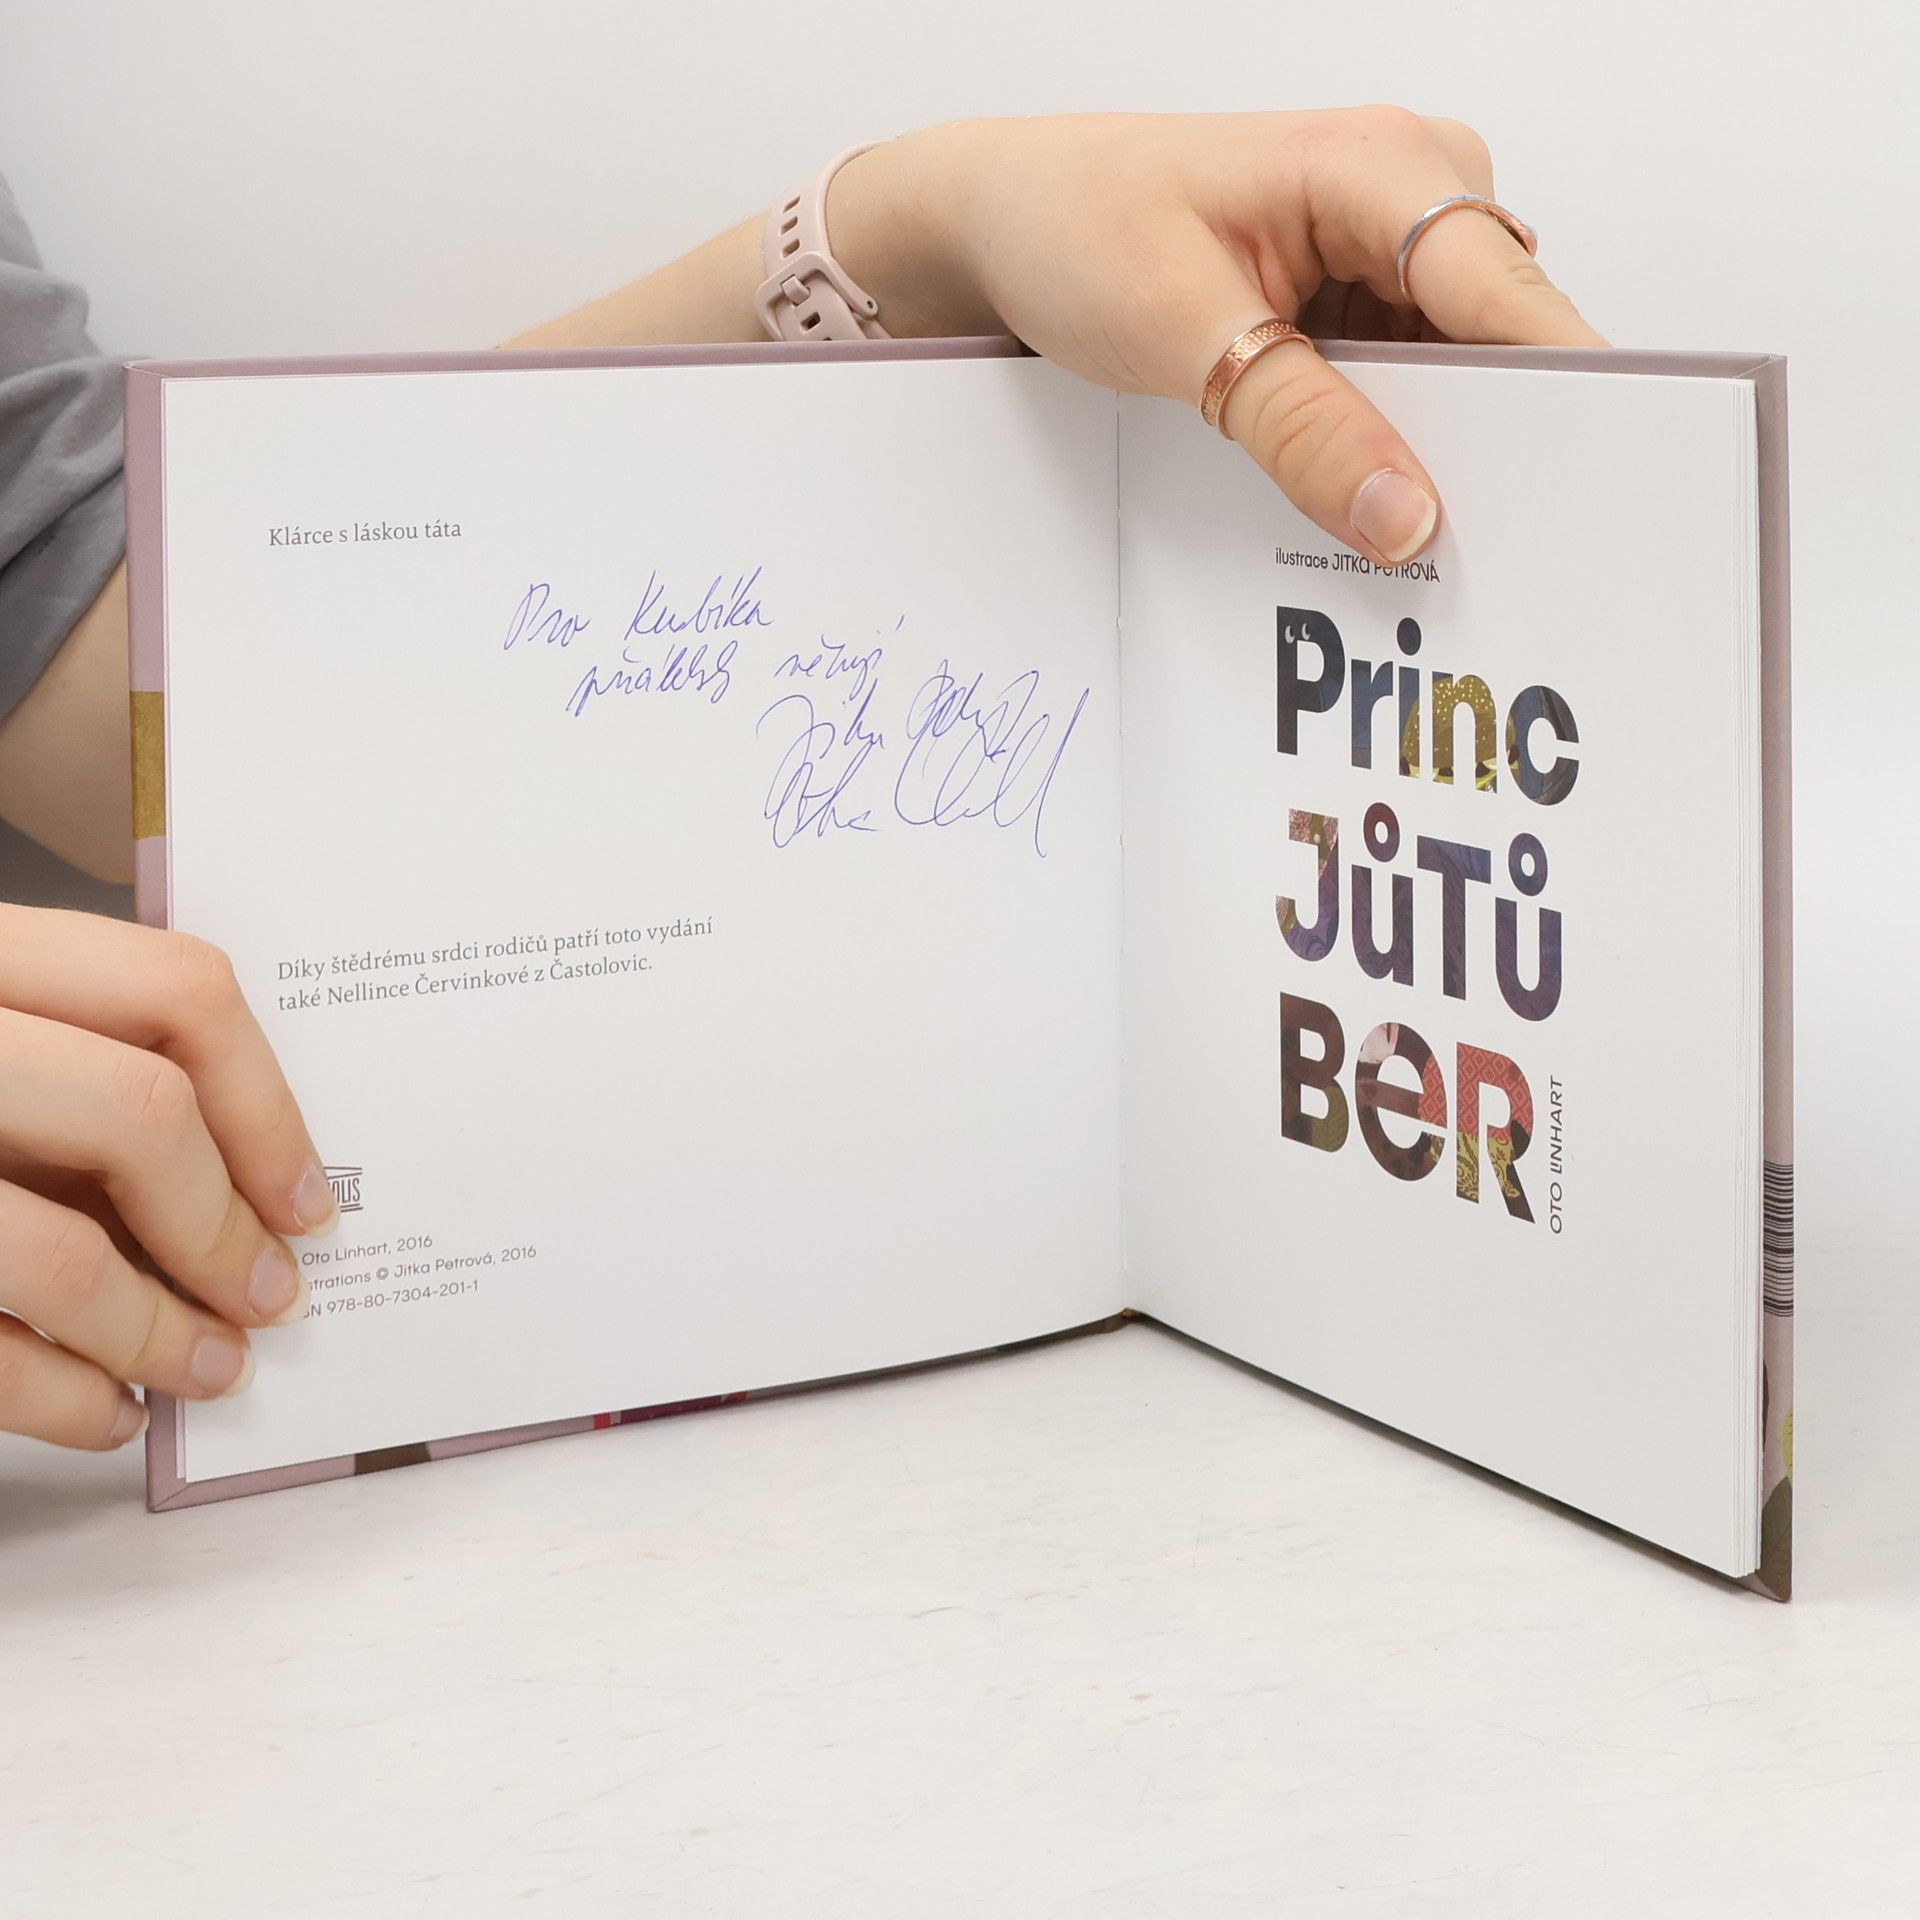 Klárce s láskou táta
Pro Kubíka
přátelsky věnují
Jitka
Díky štědrému srdci rodičů patří toto vydání
také Nellince Červinkové z Častolovic.
OLIS
Oto Linhart, 2016
strations © Jitka Petrová, 2016
N 978-80-7304-201-1
ilustrace JITKA PETROVÁ
Princ
JůTů
BeR
OTO LINHART